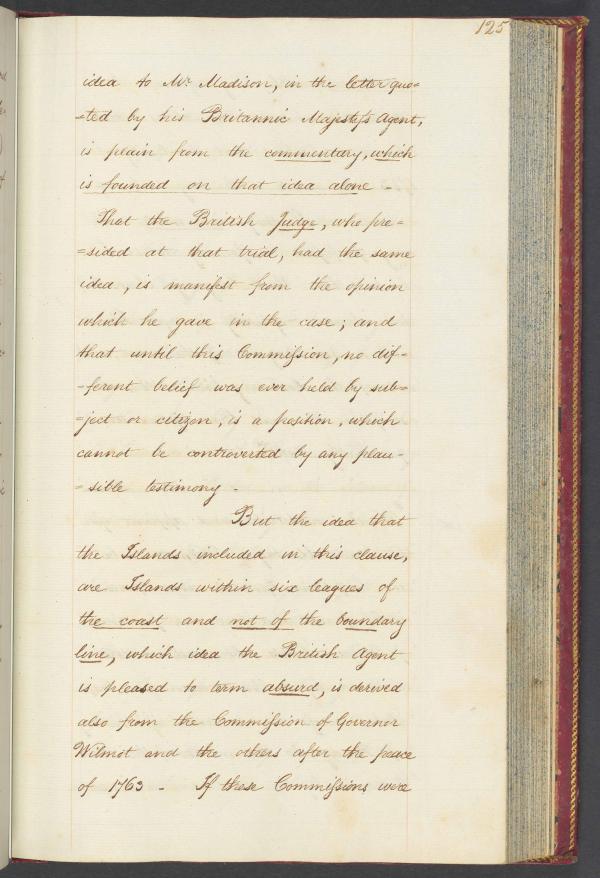 125
idea to Mr. Madison, in the letter quo=
=ted by his Britannic Majesty's Agent,
is plain from the commentary, which
is founded on that idea alone -
That the British Judge, who pre=
=sided at that trial, had the same
idea, is manifest from the opinion
which he gave in the case; and
that until this Commission, no dif=
=ferent belief was ever held by sub=
=ject or citizen, is a position, which
cannot be controverted by any plau=
=sible testimony -
But the idea that
the Islands included in this clause,
are Islands within six leagues of
the coast and not of the boundary
line, which idea the British Agent
is pleased to term absurd, is derived
also from the Commission of Governor
Wilmot and the others after the peace
of 1763 - If these Commissions were